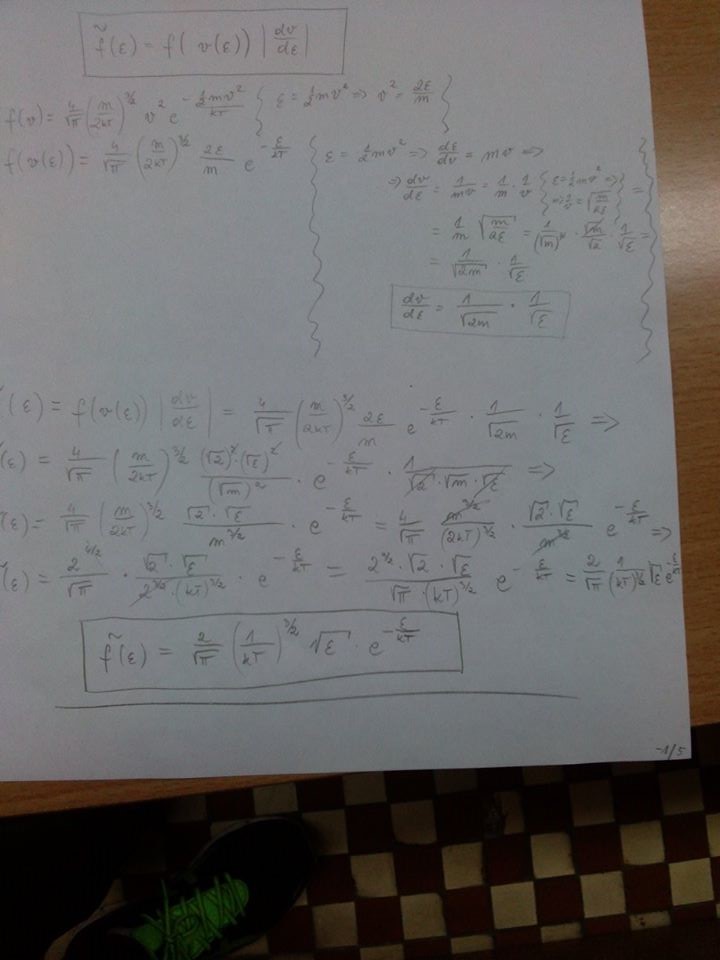 f̃(ε) = f( v(ε)) |dv/dε|
f(v) = 4/√π (m/2kT)^3/2 v² e^-(½mv²/kT) { ε = ½mv² => v² = 2ε/m }
f(v(ε)) = 4/√π (m/2kT)^3/2 2ε/m e^-ε/kT { ε = ½mv² => dε/dv = mv =>
=> dv/dε = 1/mv = 1/m · 1/v { ε = ½mv² => => 1/v = √(m/2ε) } =
= 1/m √(m/2ε) = 1/(√m)² · √m/√2 · 1/√ε =
= 1/√2m · 1/√ε
dv/dε = 1/√2m · 1/√ε
(ε) = f(v(ε)) |dv/dε| = 4/√π (m/2kT)^3/2 2ε/m e^-ε/kT · 1/√2m · 1/√ε =>
(ε) = 4/√π (m/2kT)^3/2 (√2)²·(√ε)²/(√m)² · e^-ε/kT · 1/√2·√m·√ε =>
(ε) = 4/√π (m/2kT)^3/2 √2·√ε/m^3/2 · e^-ε/kT = 4/√π m^3/2/(2kT)^3/2 · √2·√ε/m^3/2 e^-ε/kT =>
f̃(ε) = 2/√π (1/kT)^3/2 √ε · e^-ε/kT
-1/5